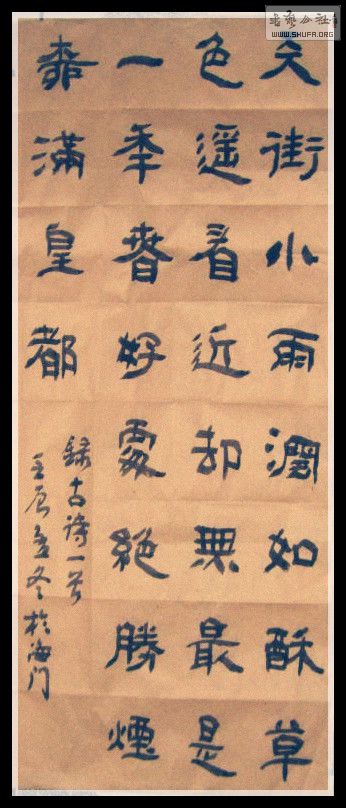 書藝公社
WWW.SHUFA.ORG
天街小雨潤如酥草
色遥看近却無最是
一年春好處絶勝煙
柳滿皇都
録古诗一首
壬辰孟冬於海门